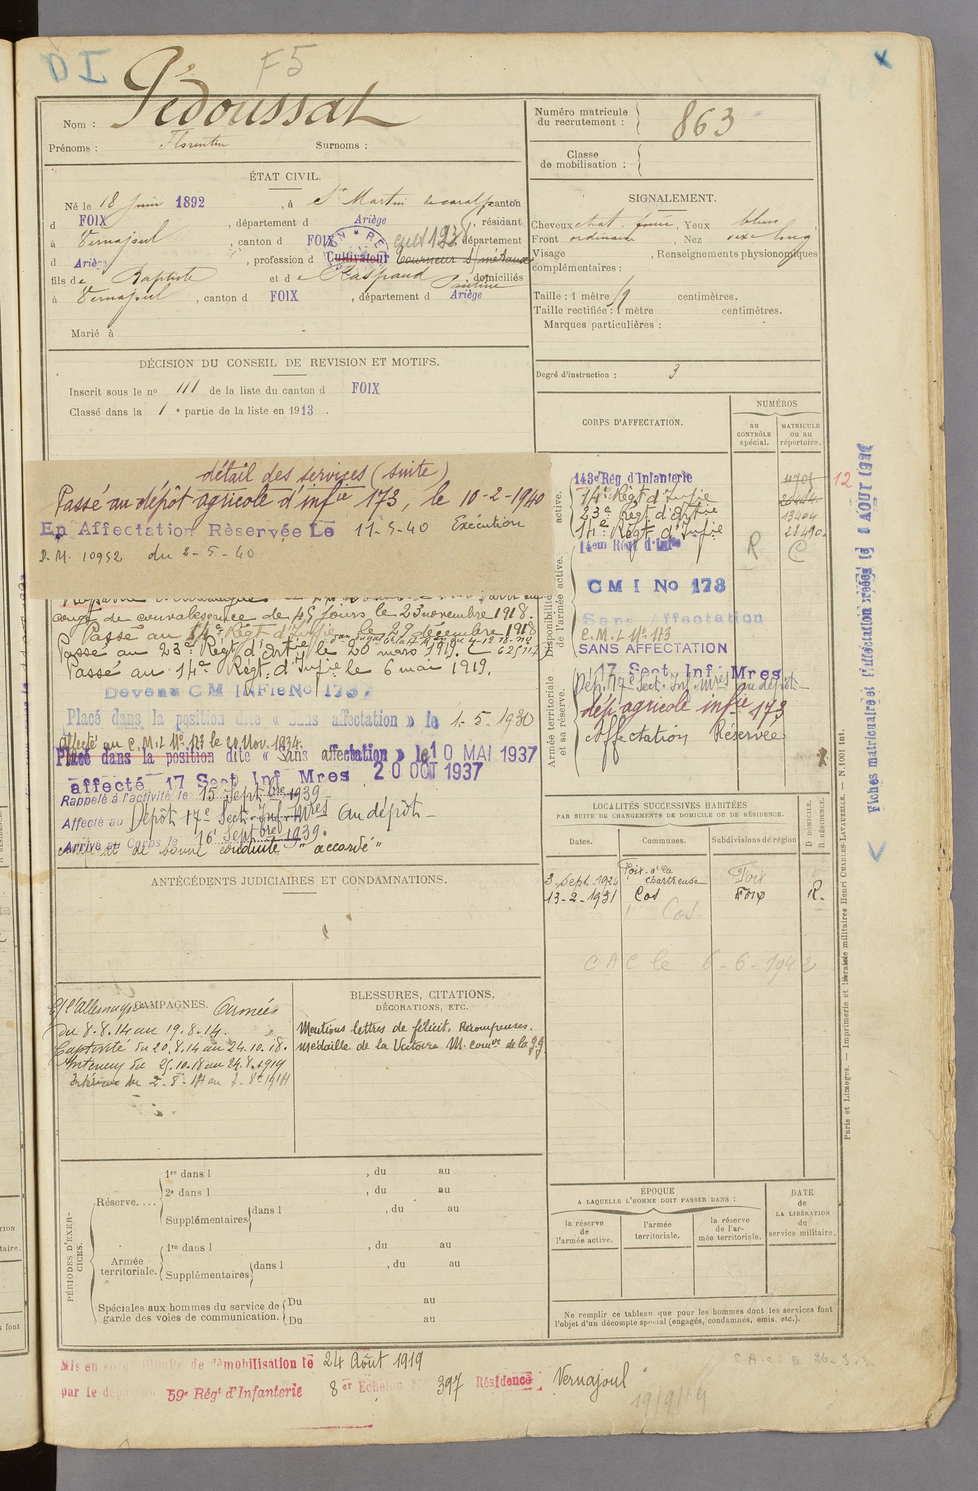 F5
Nom : Pédoussat
Prénoms : Florentin Surnoms :
Numéro matricule
du recrutement : 863
Classe
de mobilisation :
ÉTAT CIVIL.
Né le 18 juin 1892, à St Martin de caralp canton
d FOIX, département d Ariège, résidant
à Vernajoul, canton d FOIX département
d Ariège, profession d Cultivateur Tourneur s/ métaux
fils de Baptiste et de Raspaud Pauline, domiciliés
à Vernajoul, canton d FOIX, département d Ariège
Marié à
SIGNALEMENT.
Cheveux chat. foncé, Yeux bleus
Front ordinaire, Nez long
Visage , Renseignements physionomiques
complémentaires :
Taille : 1 mètre 59 centimètres.
Taille rectifiée : 1 mètre centimètres.
Marques particulières :
Degré d'instruction : 3
DÉCISION DU CONSEIL DE REVISION ET MOTIFS.
Inscrit sous le no 111 de la liste du canton d FOIX
Classé dans la 1e partie de la liste en 1913.
détail des services (suite)
Passé au dépôt agricole d'infie 173, le 10-2-1940
En Affectation Rèservée Le 11-5-40 Exécution
D.M. 10952 du 2-5-40
congé de convalescence de 45 jours le 23 novembre 1918.
Passé au 14e Régt d'Infie le 29 décembre 1918
Passé au 23e Régt d'Artie le 20 mars 1919.
Passé au 14e Régt d'Infie le 6 mai 1919.
Devenu CM INFie No 173
Placé dans la position dite « Sans affectation » le 1-5-1930
Affecté au C.M.I. No 173 le 20 Nov. 1934.
Placé dans la position dite « Sans affectation » le 10 MAI 1937
affecté 17 Sect Inf Mres 20 OCT 1937
Rappelé à l'activité le 15 Septbre 1939
Affecté au Dépôt 17e Sect. Inf. Mres Au dépôt
Arrivé au Corps le 16 Septbre 1939.
certificat de bonne conduite "accordé"
CORPS D'AFFECTATION.
NUMÉROS
au
CONTRÔLE
spécial.
MATRICULE
ou au
répertoire.
Disponibilité
de l'armée active.
active.
Armée territoriale
et sa réserve.
143e Rég d'Infanterie
14e Régt d'Infie
23e Régt d'Artie
14e Régt d'Infie
14em Regt d'Infie
R C
CMI No 173
Sans Affectation
C.M.I. No 173
SANS AFFECTATION
17 Sect. Inf Mres
Dép. 17e Sect. Inf. Mres au dépôt
dép. agricole infie 173
Affectation Réservée
12
Fiches matriculaire et d'Affectation créées le AOUT 1938
ANTÉCÉDENTS JUDICIAIRES ET CONDAMNATIONS.
LOCALITÉS SUCCESSIVES HABITÉES
PAR SUITE DE CHANGEMENTS DE DOMICILE OU DE RÉSIDENCE.
Dates. Communes. Subdivisions de région D. DOMICILE. R. RÉSIDENCE.
3 Sept. 1926 Foix. Chartreuse Foix
13-2-1931 Cos Foix R.
Cos
CAC le 6-6-1942
CAMPAGNES.
C/ l'Allemagne Armées
Du 8.8.14 au 19.8.14.
Captivité du 20.8.14 au 24.10.18.
Intérieur du 25.10.18 au 24.8.1919
BLESSURES, CITATIONS,
DÉCORATIONS, ETC.
Mentions lettres de félicit. Recompenses.
Médaille de la Victoire M. comve de la g.g.
PÉRIODES D'EXERCICES.
Réserve....
1re dans l , du au
2e dans l , du au
Supplémentaires dans l , du au
Armée
territoriale.
1re dans l , du au
Supplémentaires dans l , du au
Spéciales aux hommes du service de
garde des voies de communication.
Du au
Du au
ÉPOQUE
A LAQUELLE L'HOMME DOIT PASSER DANS :
la réserve
de
l'armée active.
l'armée
territoriale.
la réserve
de l'ar-
mée territoriale.
DATE
de
LA LIBÉRATION
du
service militaire.
Ne remplir ce tableau que pour les hommes dont les services font
l'objet d'un décompte spécial (engagés, condamnés, omis, etc.).
Paris et Limoges. — Imprimerie et librairie militaires Henri CHARLES-LAVAUZELLE. — N. 1001 int.
Mis en congé illimité de démobilisation le 24 Août 1919
par le dépôt du 59e Régt d'Infanterie 8er Echelon N° 397 Résidence Vernajoul
19/9/19